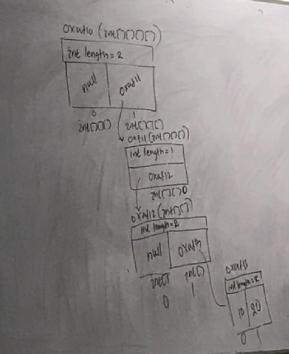 0xau10 (int[][][][])
int length=2
null 0xau11
0 1
int[][][] int[][][]
0xau11 (int[][][])
int length=1
0xau12
int[][] 0
0xau12 (int[][])
int length=2
null 0xau13
int[] int[]
0 1
0xau13
int length=2
10 20
0 1